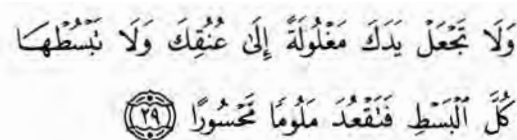 وَلَا تَجْعَلْ يَدَكَ مَغْلُولَةً إِلَىٰ عُنُقِكَ وَلَا تَبْسُطْهَا
كُلَّ ٱلْبَسْطِ فَتَقْعُدَ مَلُومًا مَّحْسُورًا ٢٩